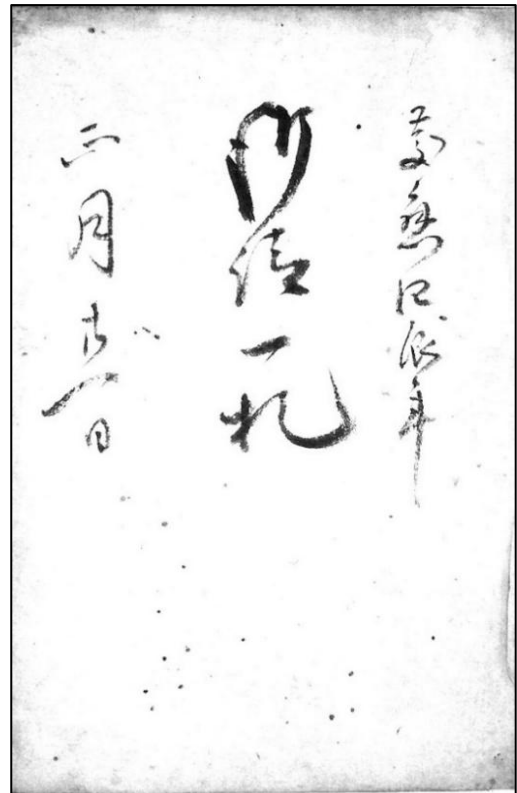 慶應四辰年
御請一札
正月廿一日